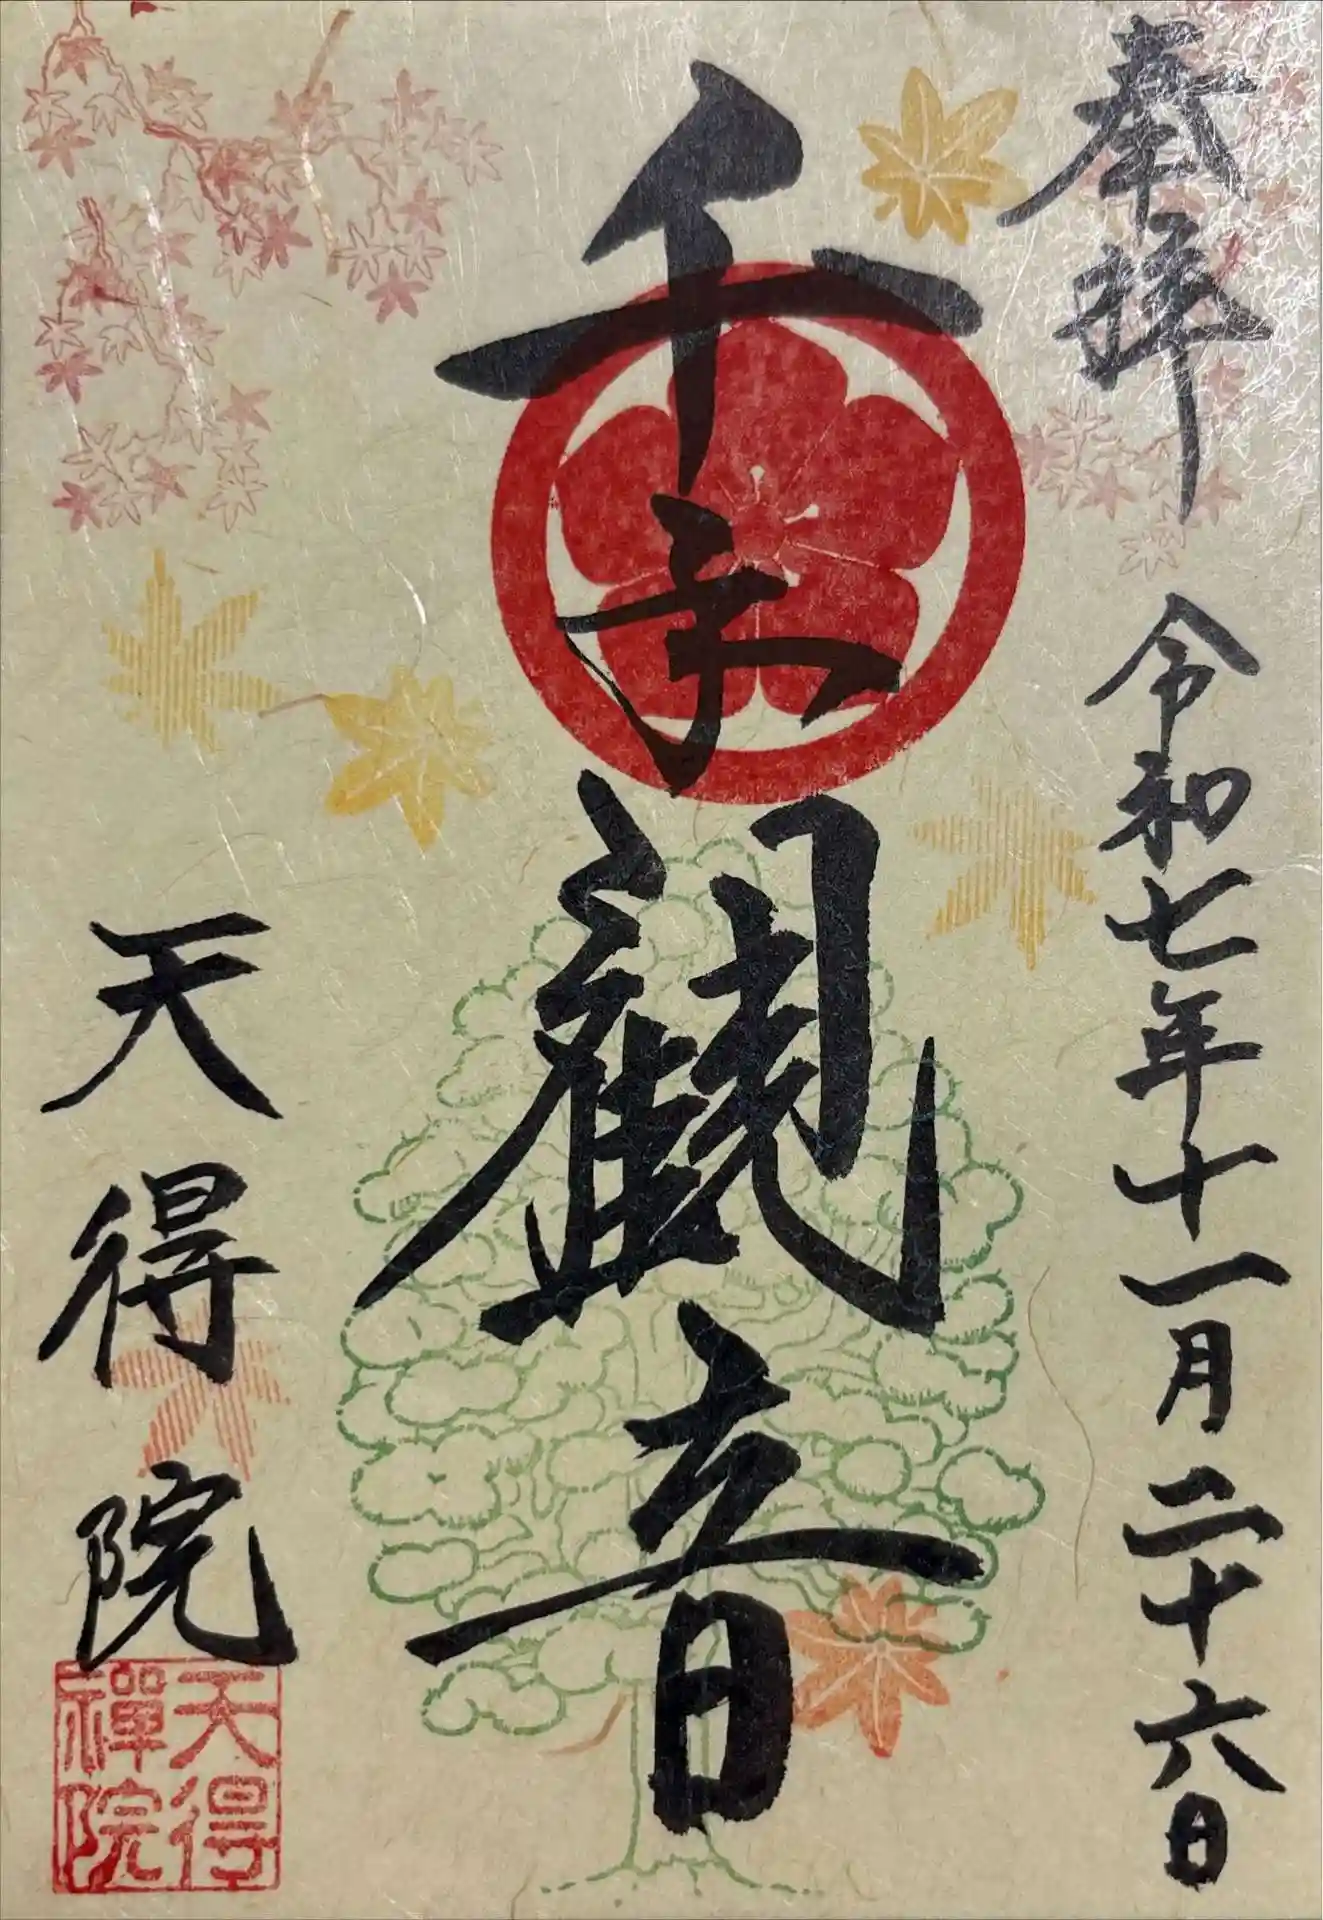 奉拝
令和七年十一月二十六日
千手観音
天得院
天得禅院